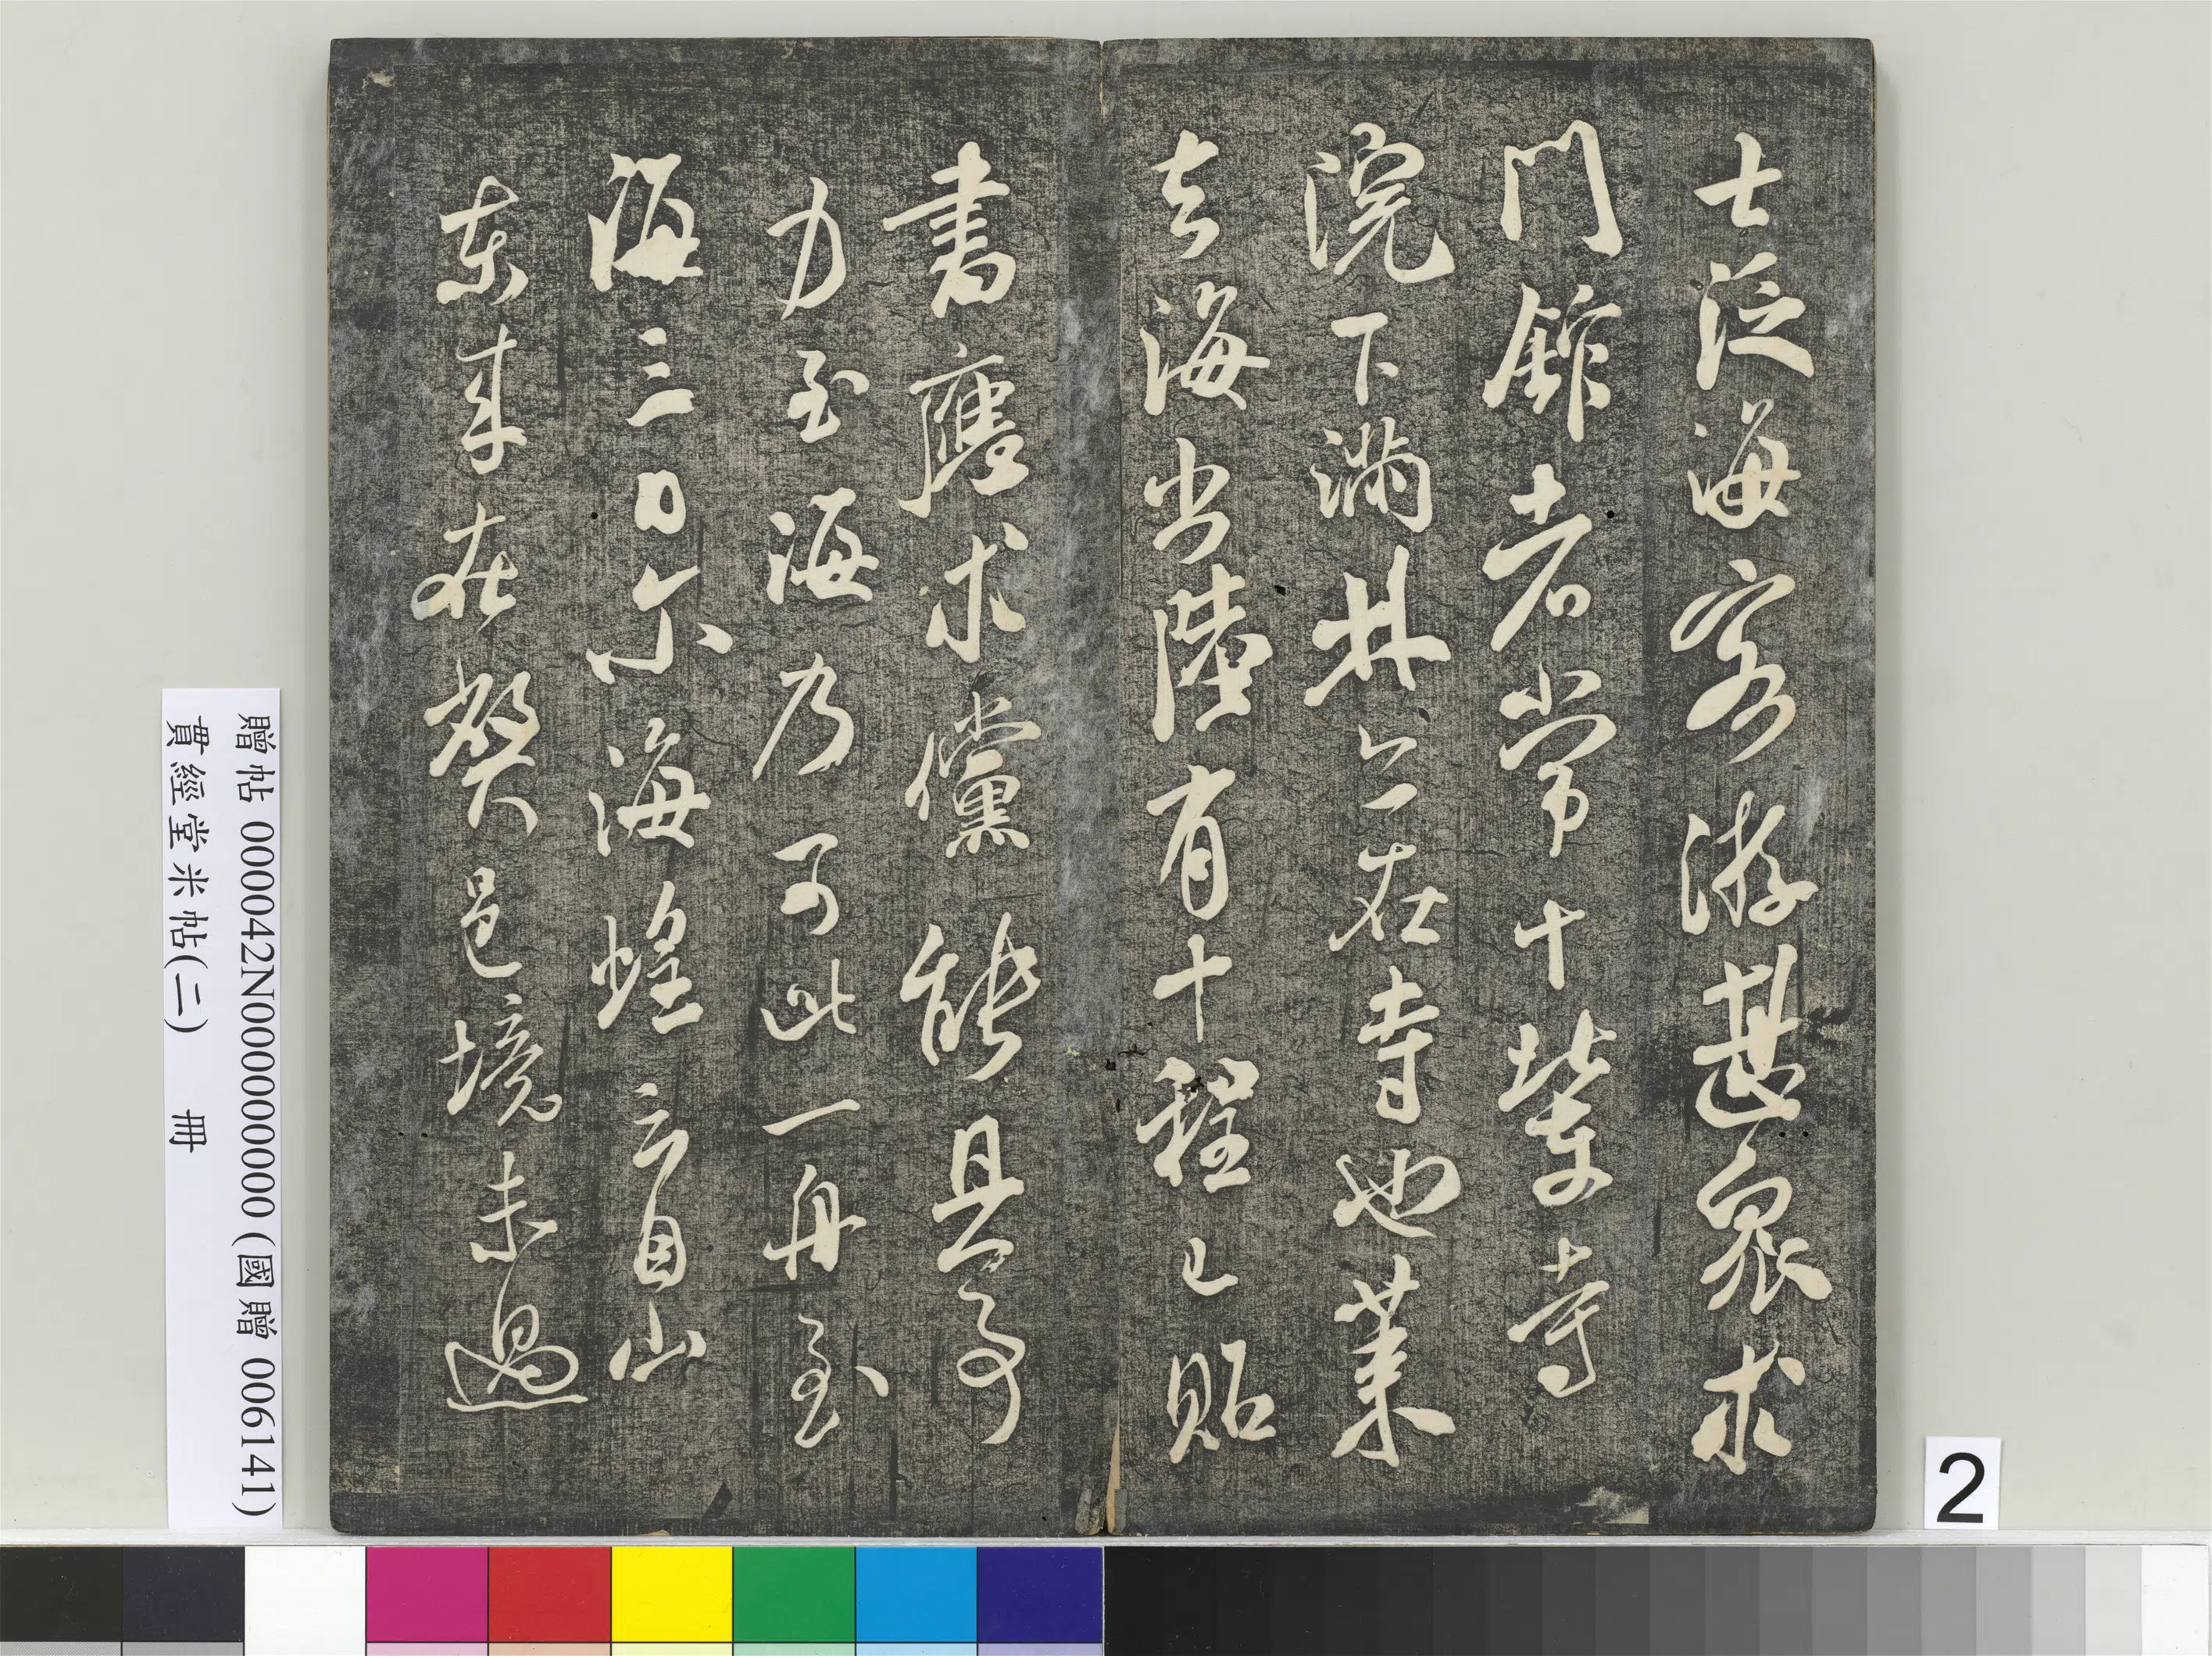 士泛海客游甚衆求
門館者常十輩寺
院下滿其六在寺也業
去海尚陸有十程已貽
書應求儻能具舟
力至海乃可此一舟至
海三日尔海蝗云自山
東來在弊邑境未過
贈帖 000042N000000000 (國贈 006141)
貫經堂米帖(二) 冊
2